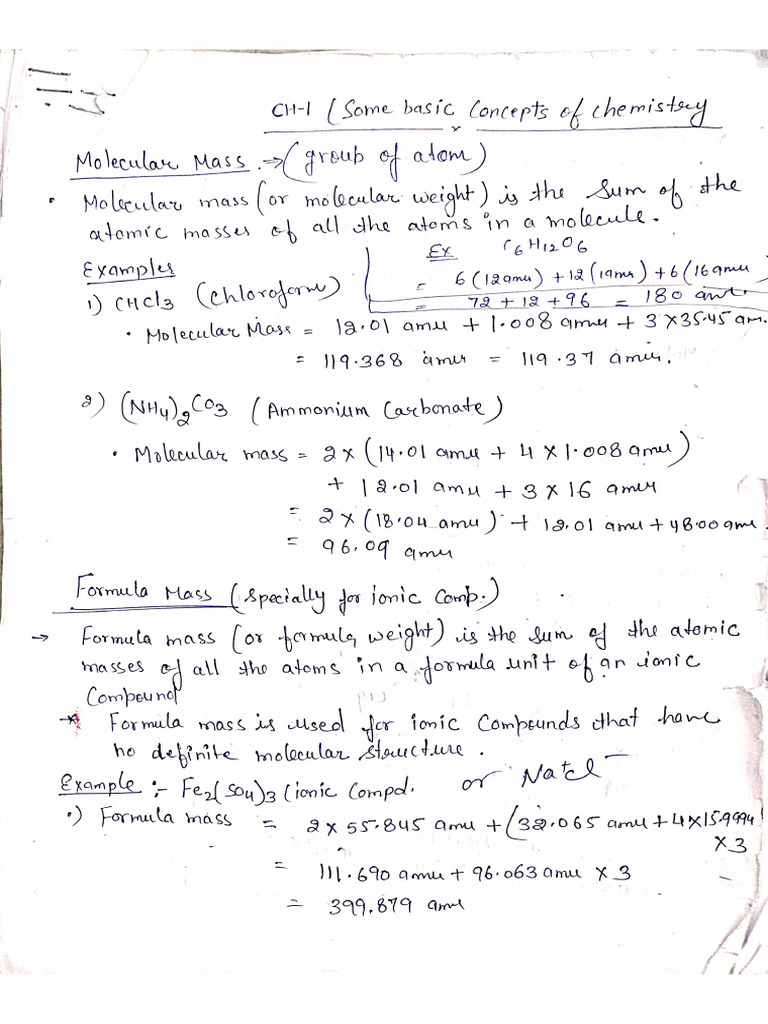 CH-1 (Some basic Concepts of chemistry
Molecular Mass. → (group of atom)
• Molecular mass (or molecular weight) is the sum of the
atomic masses of all the atoms in a molecule.
Examples
Ex C6H12O6
= 6(12amu) + 12(1amu) + 6(16amu)
= 72 + 12 + 96 = 180 amu
1) CHCl3 (Chloroform)
• Molecular Mass = 12.01 amu + 1.008 amu + 3 X 35.45 am.
= 119.368 amu = 119.37 amu.
2) (NH4)2CO3 (Ammonium Carbonate)
• Molecular mass = 2 x (14.01 amu + 4 X 1.008 amu)
+ 12.01 amu + 3 X 16 amu
= 2 X (18.04 amu) + 12.01 amu + 48.00 amu.
= 96.09 amu
Formula Mass (Specially for ionic Comp.)
→ Formula mass (or formula weight) is the sum of the atomic
masses of all the atoms in a formula unit of an ionic
Compound
* Formula mass is used for ionic Compounds that have
no definite molecular structure.
Example :- Fe2(SO4)3 (ionic Compd. or Na+Cl-
•) Formula mass = 2 x 55.845 amu + (32.065 amu + 4 X 15.9994)
X 3
= 111.690 amu + 96.063 amu X 3
= 399.879 amu